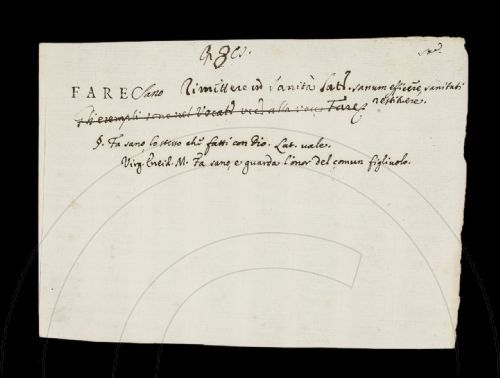 FARE Sano Rimettere in sanità Lat. sanum efficere, sanitati
restituere.
Gli esempli sono nel Vocab. alla voce Fare
§. Fa sano lo stesso che fatti con Dio. Lat. vale.
Virg. Eneid. M. Fa sano, e guarda l'onor del comun figliuolo.